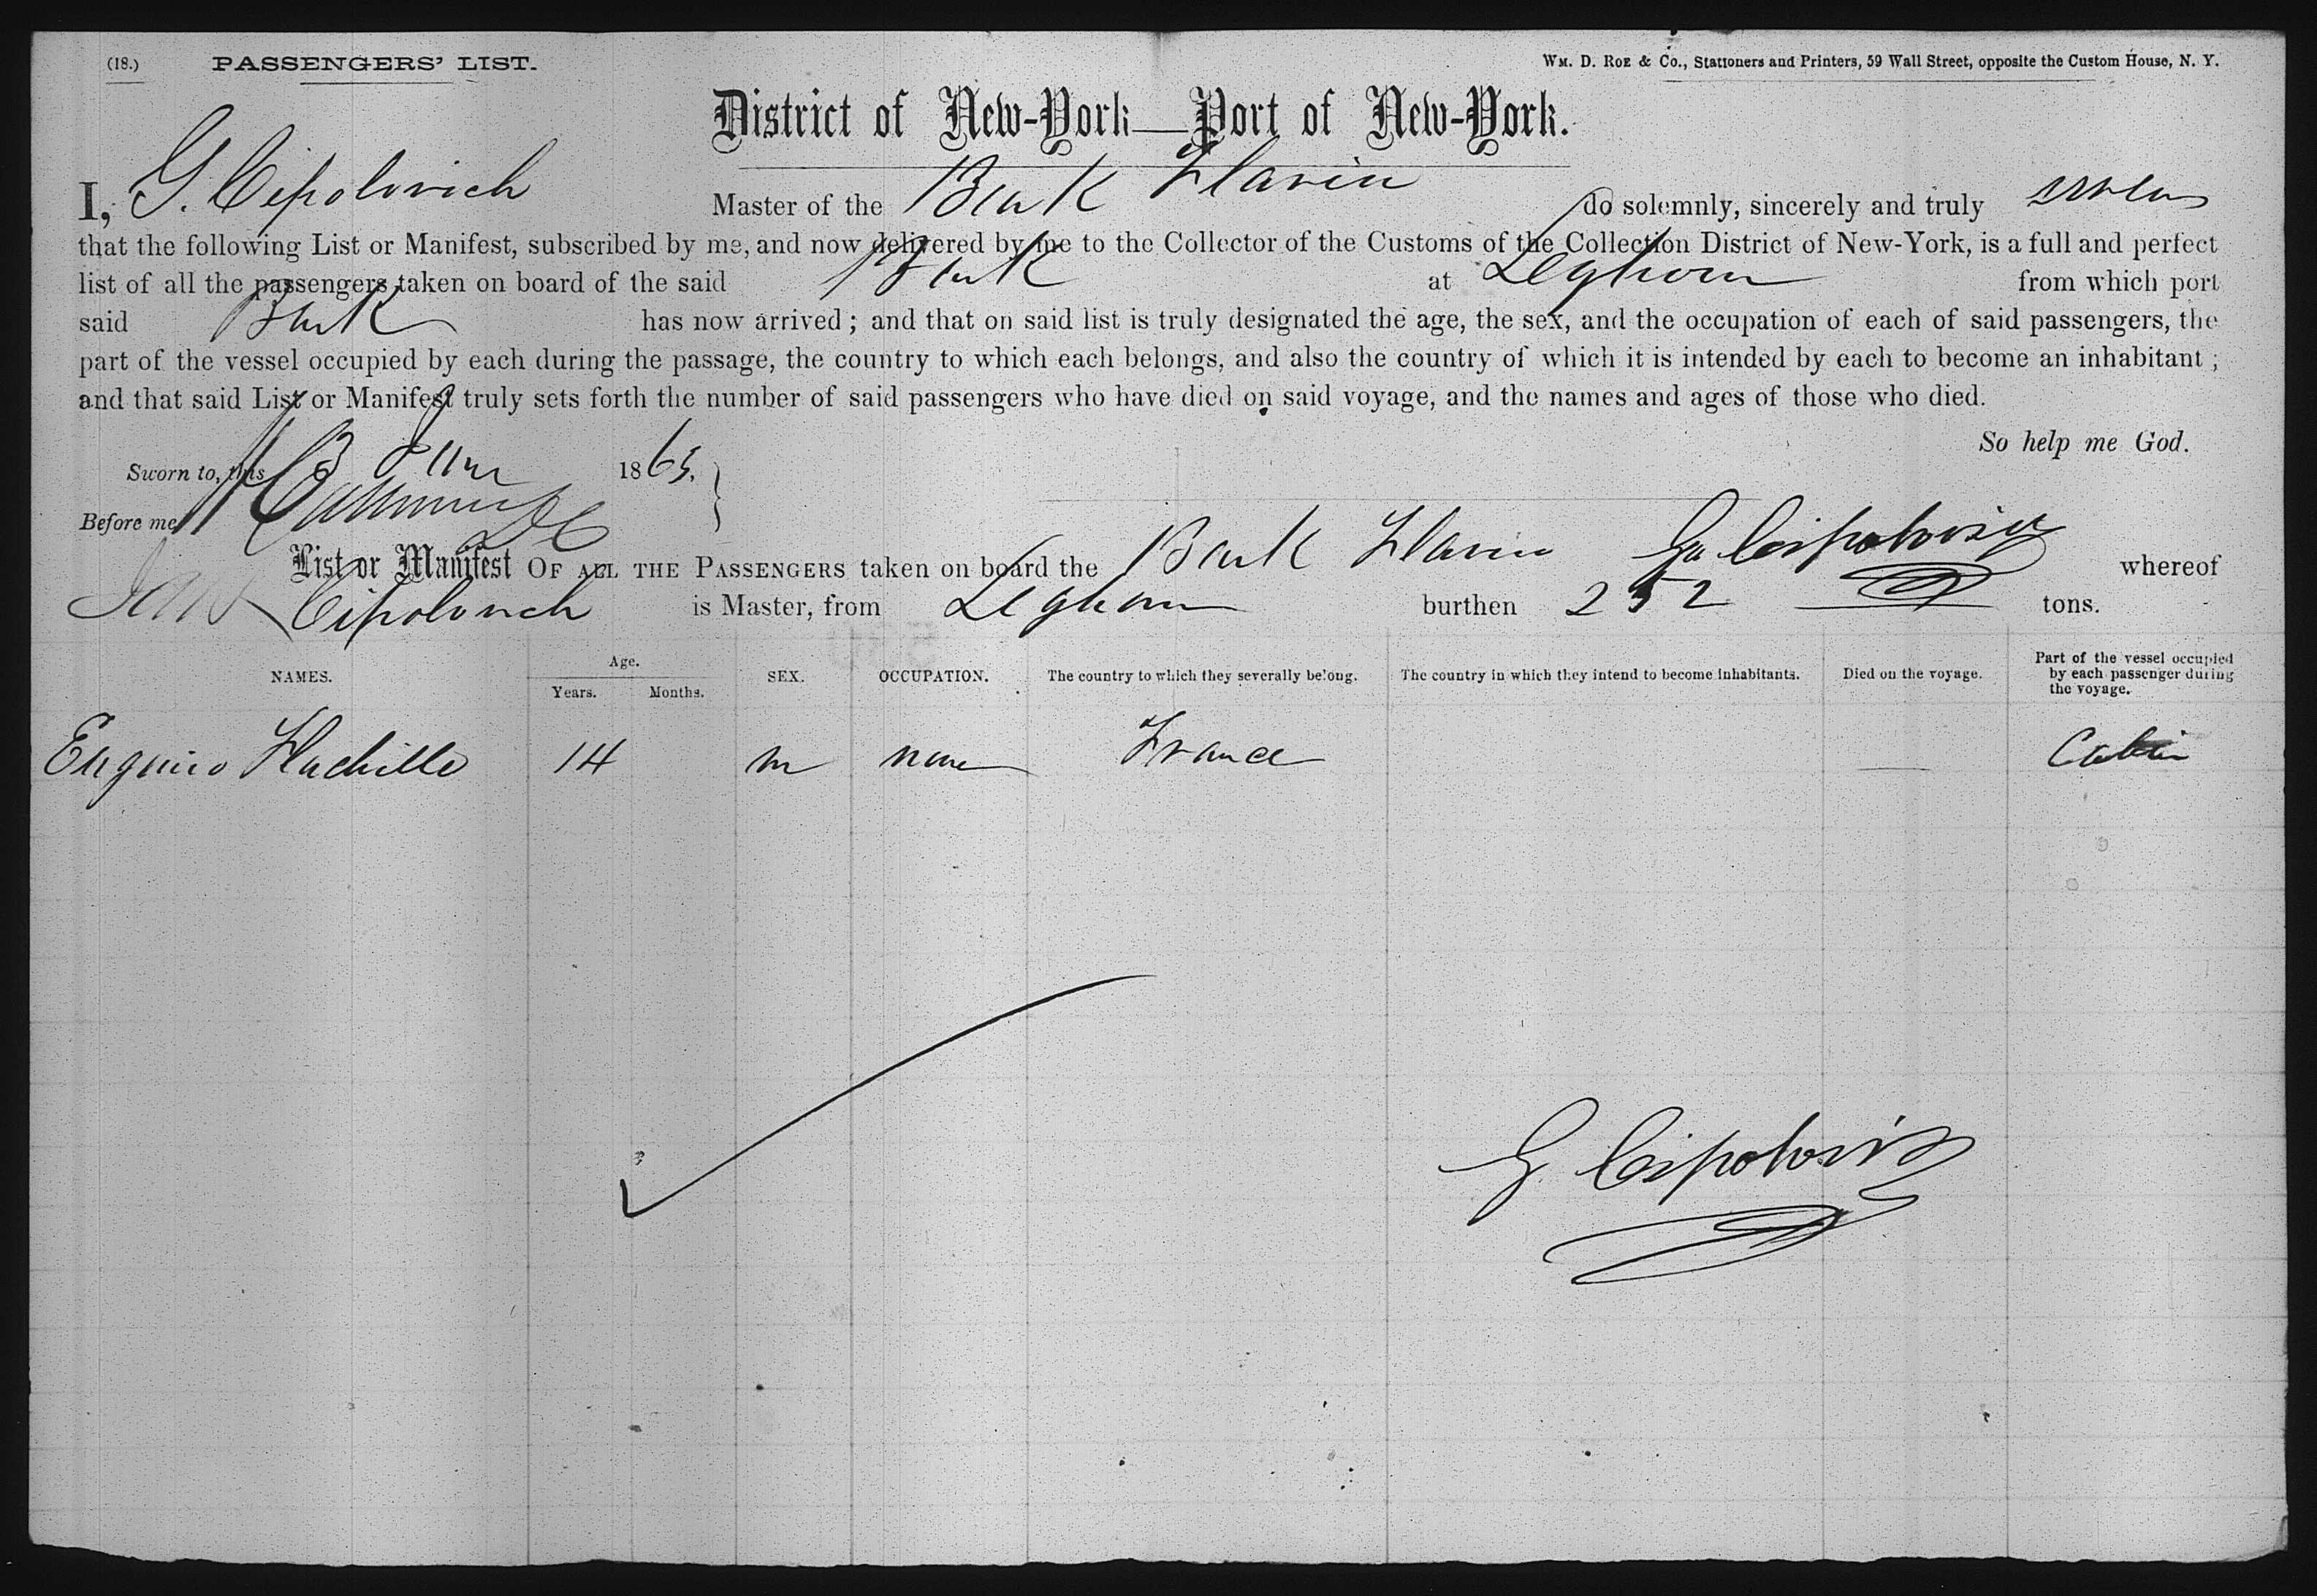 (18.) PASSENGERS' LIST.
WM. D. ROE & CO., Stationers and Printers, 59 Wall Street, opposite the Custom House, N. Y.
District of New-York—Port of New-York.
I, G. Cipolovich Master of the Bark Flavin do solemnly, sincerely and truly swear
that the following List or Manifest, subscribed by me, and now delivered by me to the Collector of the Customs of the Collection District of New-York, is a full and perfect
list of all the passengers taken on board of the said Bark at Leghorn from which port
said Bark has now arrived; and that on said list is truly designated the age, the sex, and the occupation of each of said passengers, the
part of the vessel occupied by each during the passage, the country to which each belongs, and also the country of which it is intended by each to become an inhabitant;
and that said List or Manifest truly sets forth the number of said passengers who have died on said voyage, and the names and ages of those who died.
So help me God.
Sworn to, this 1865.
Before me
List or Manifest OF ALL THE PASSENGERS taken on board the Bark Flavin whereof
Cipolovich is Master, from Leghorn burthen 252 tons.
NAMES. Age. Years. Months. SEX. OCCUPATION. The country to which they severally belong. The country in which they intend to become inhabitants. Died on the voyage. Part of the vessel occupied by each passenger during the voyage.
14 m none France — Cabin